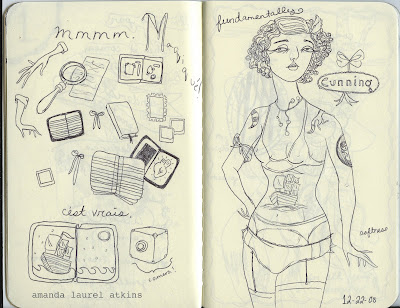 mmmm. Magique!
c'est vrais.
camera.
amanda laurel atkins
fundamentally
Cunning
softness
12-22-08